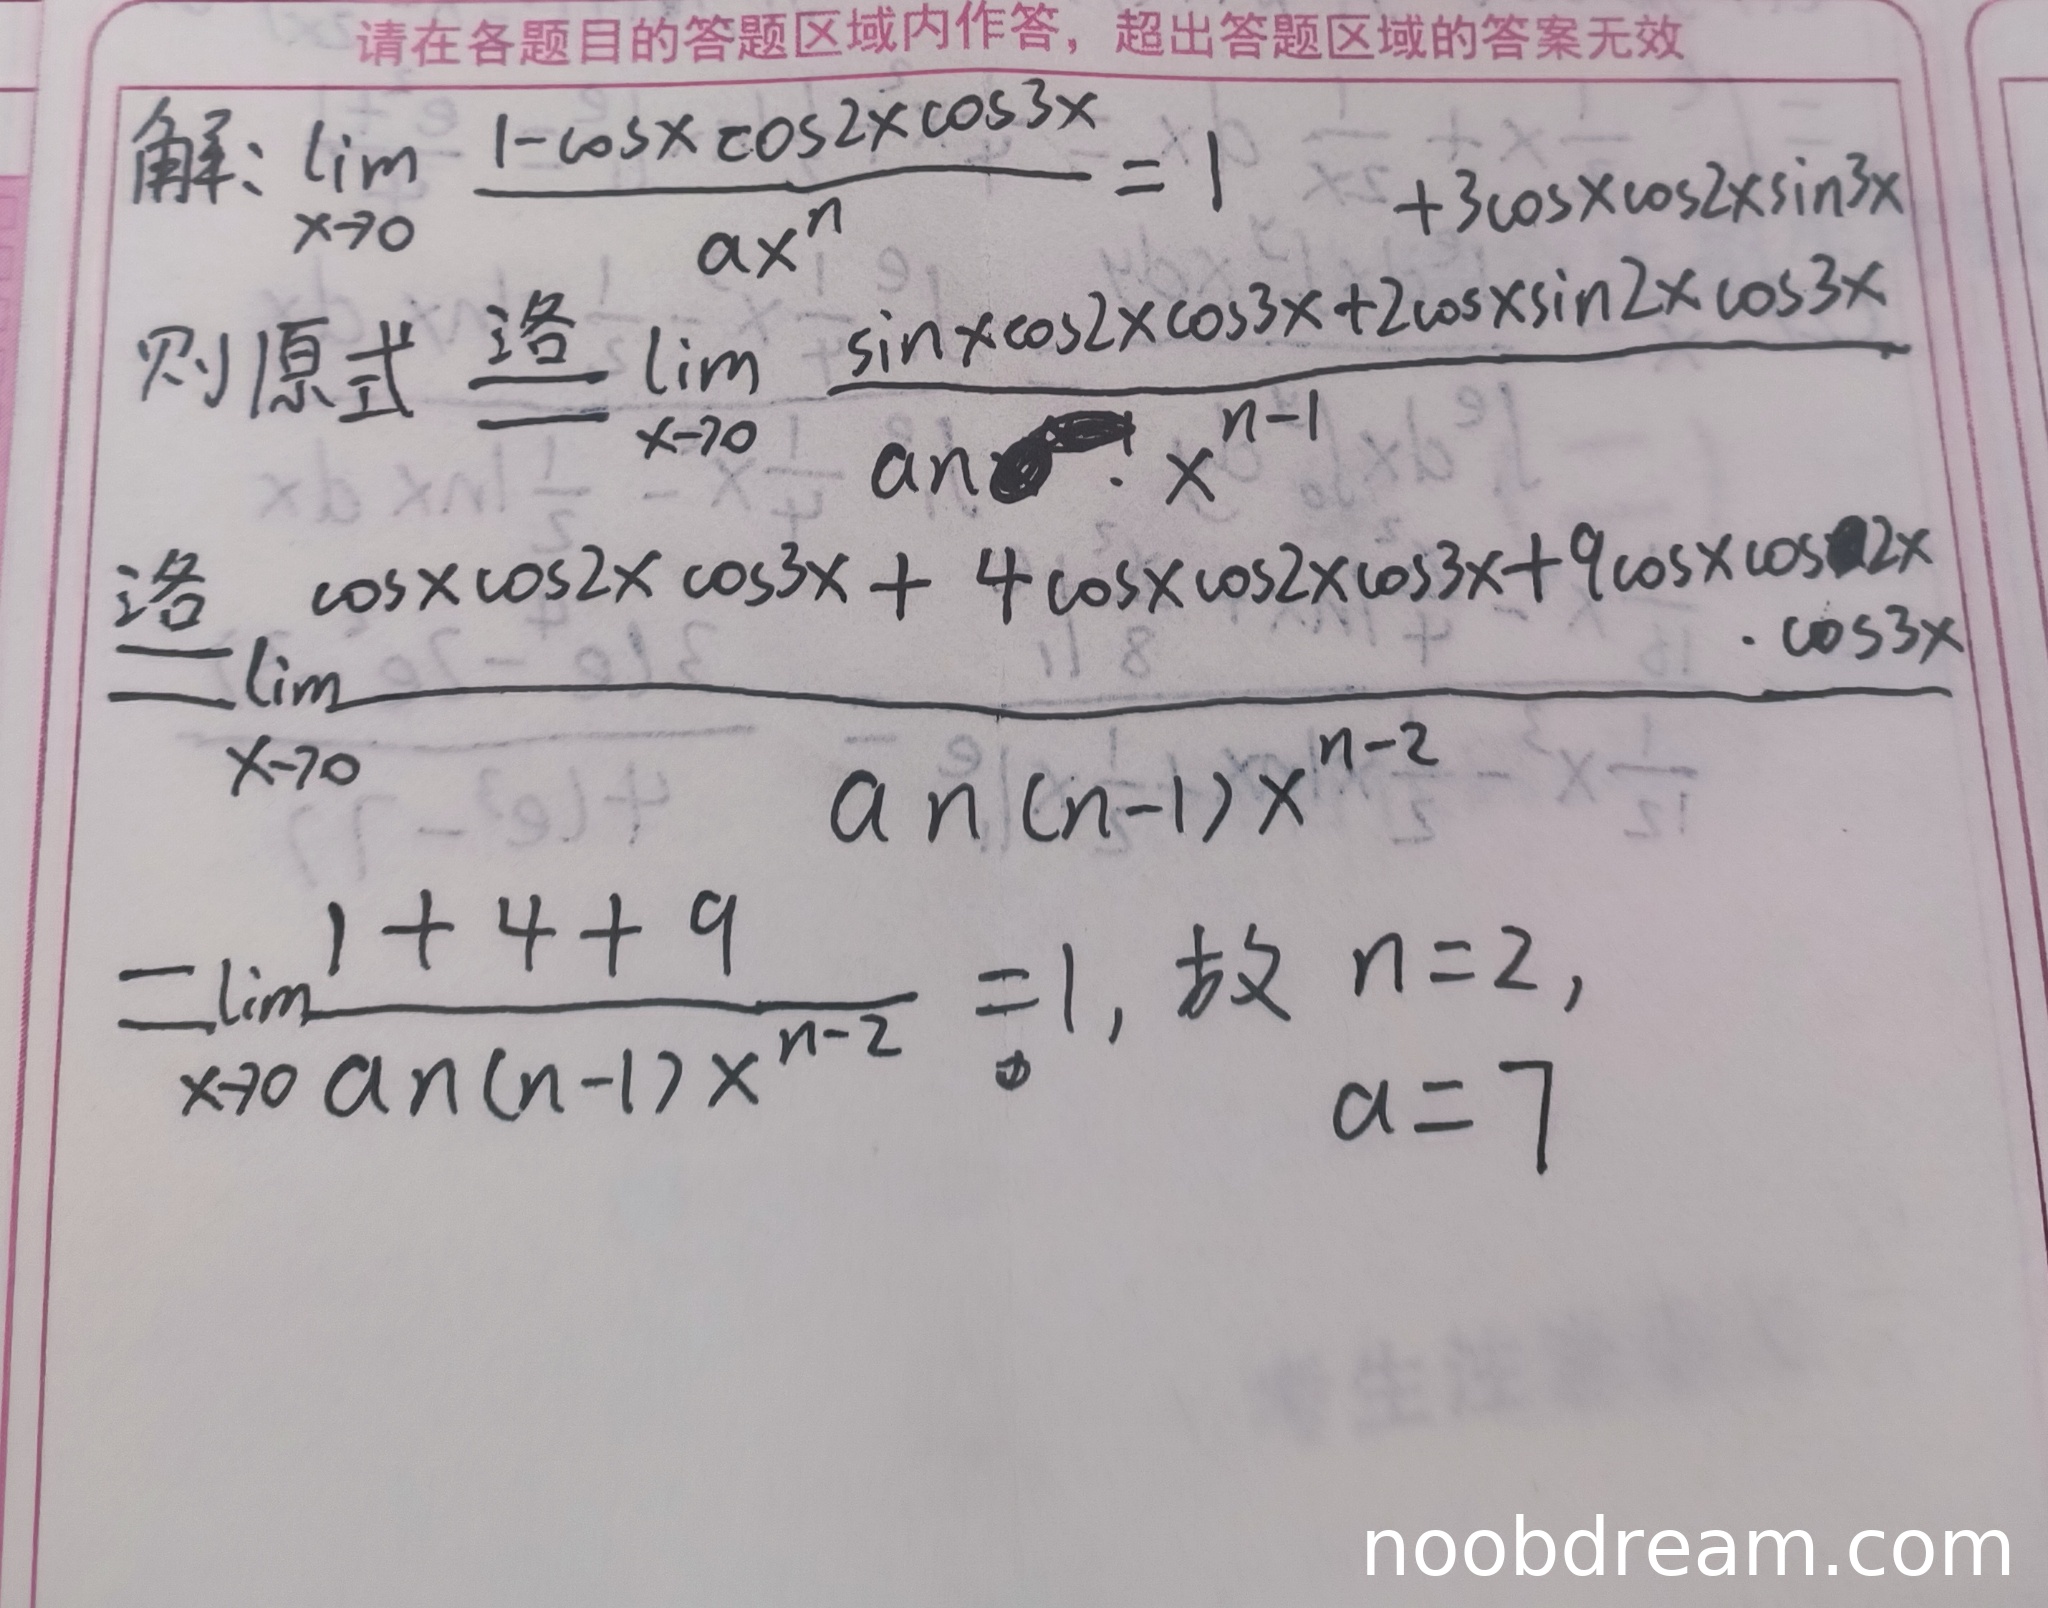 请在各题目的答题区域内作答，超出答题区域的答案无效
解: lim x→0 (1-cosx cos2x cos3x)/(ax^n) = 1
+3cosxcos2xsin3x
则原式 洛= lim x→0 (sinxcos2xcos3x+2cosxsin2xcos3x)/(an · x^(n-1))
洛= lim x→0 (cosxcos2xcos3x + 4cosxcos2xcos3x+9cosxcos2x · cos3x)/(an(n-1)x^(n-2))
= lim x→0 (1+4+9)/(an(n-1)x^(n-2)) = 1, 故 n=2,
a=7
noobdream.com